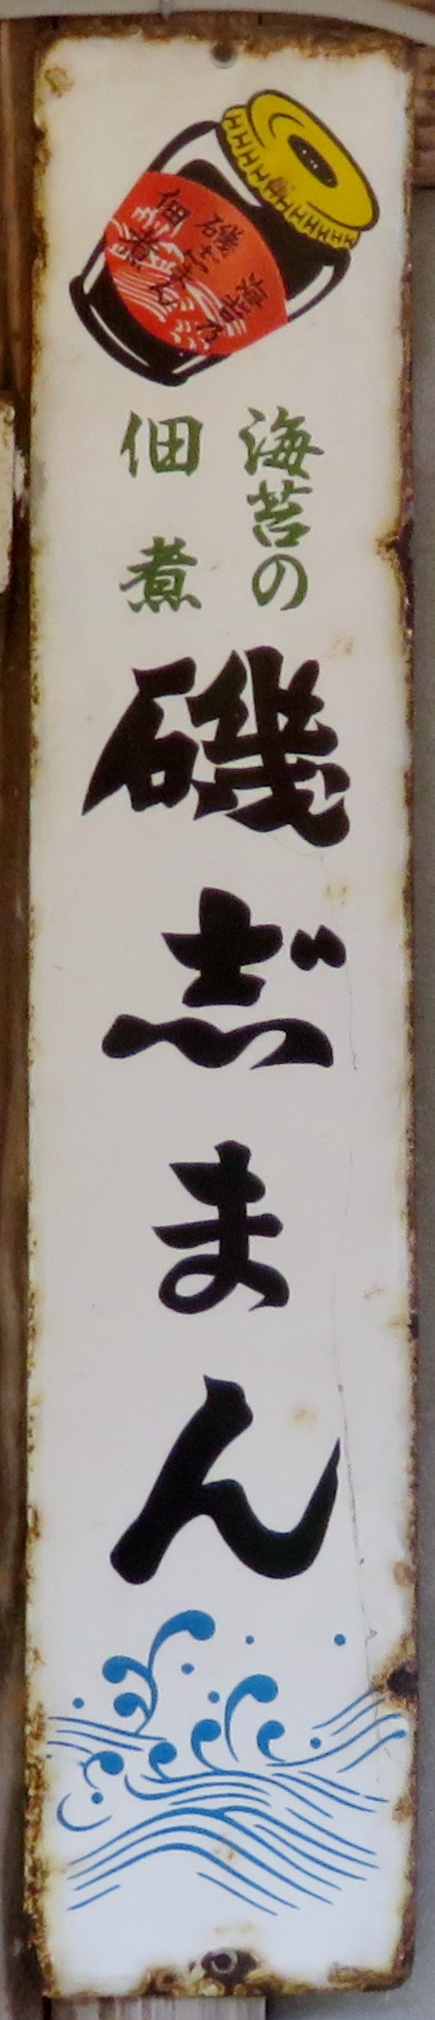 磯志゛まん
海苔の
佃煮
海苔の
佃煮
磯志゛まん